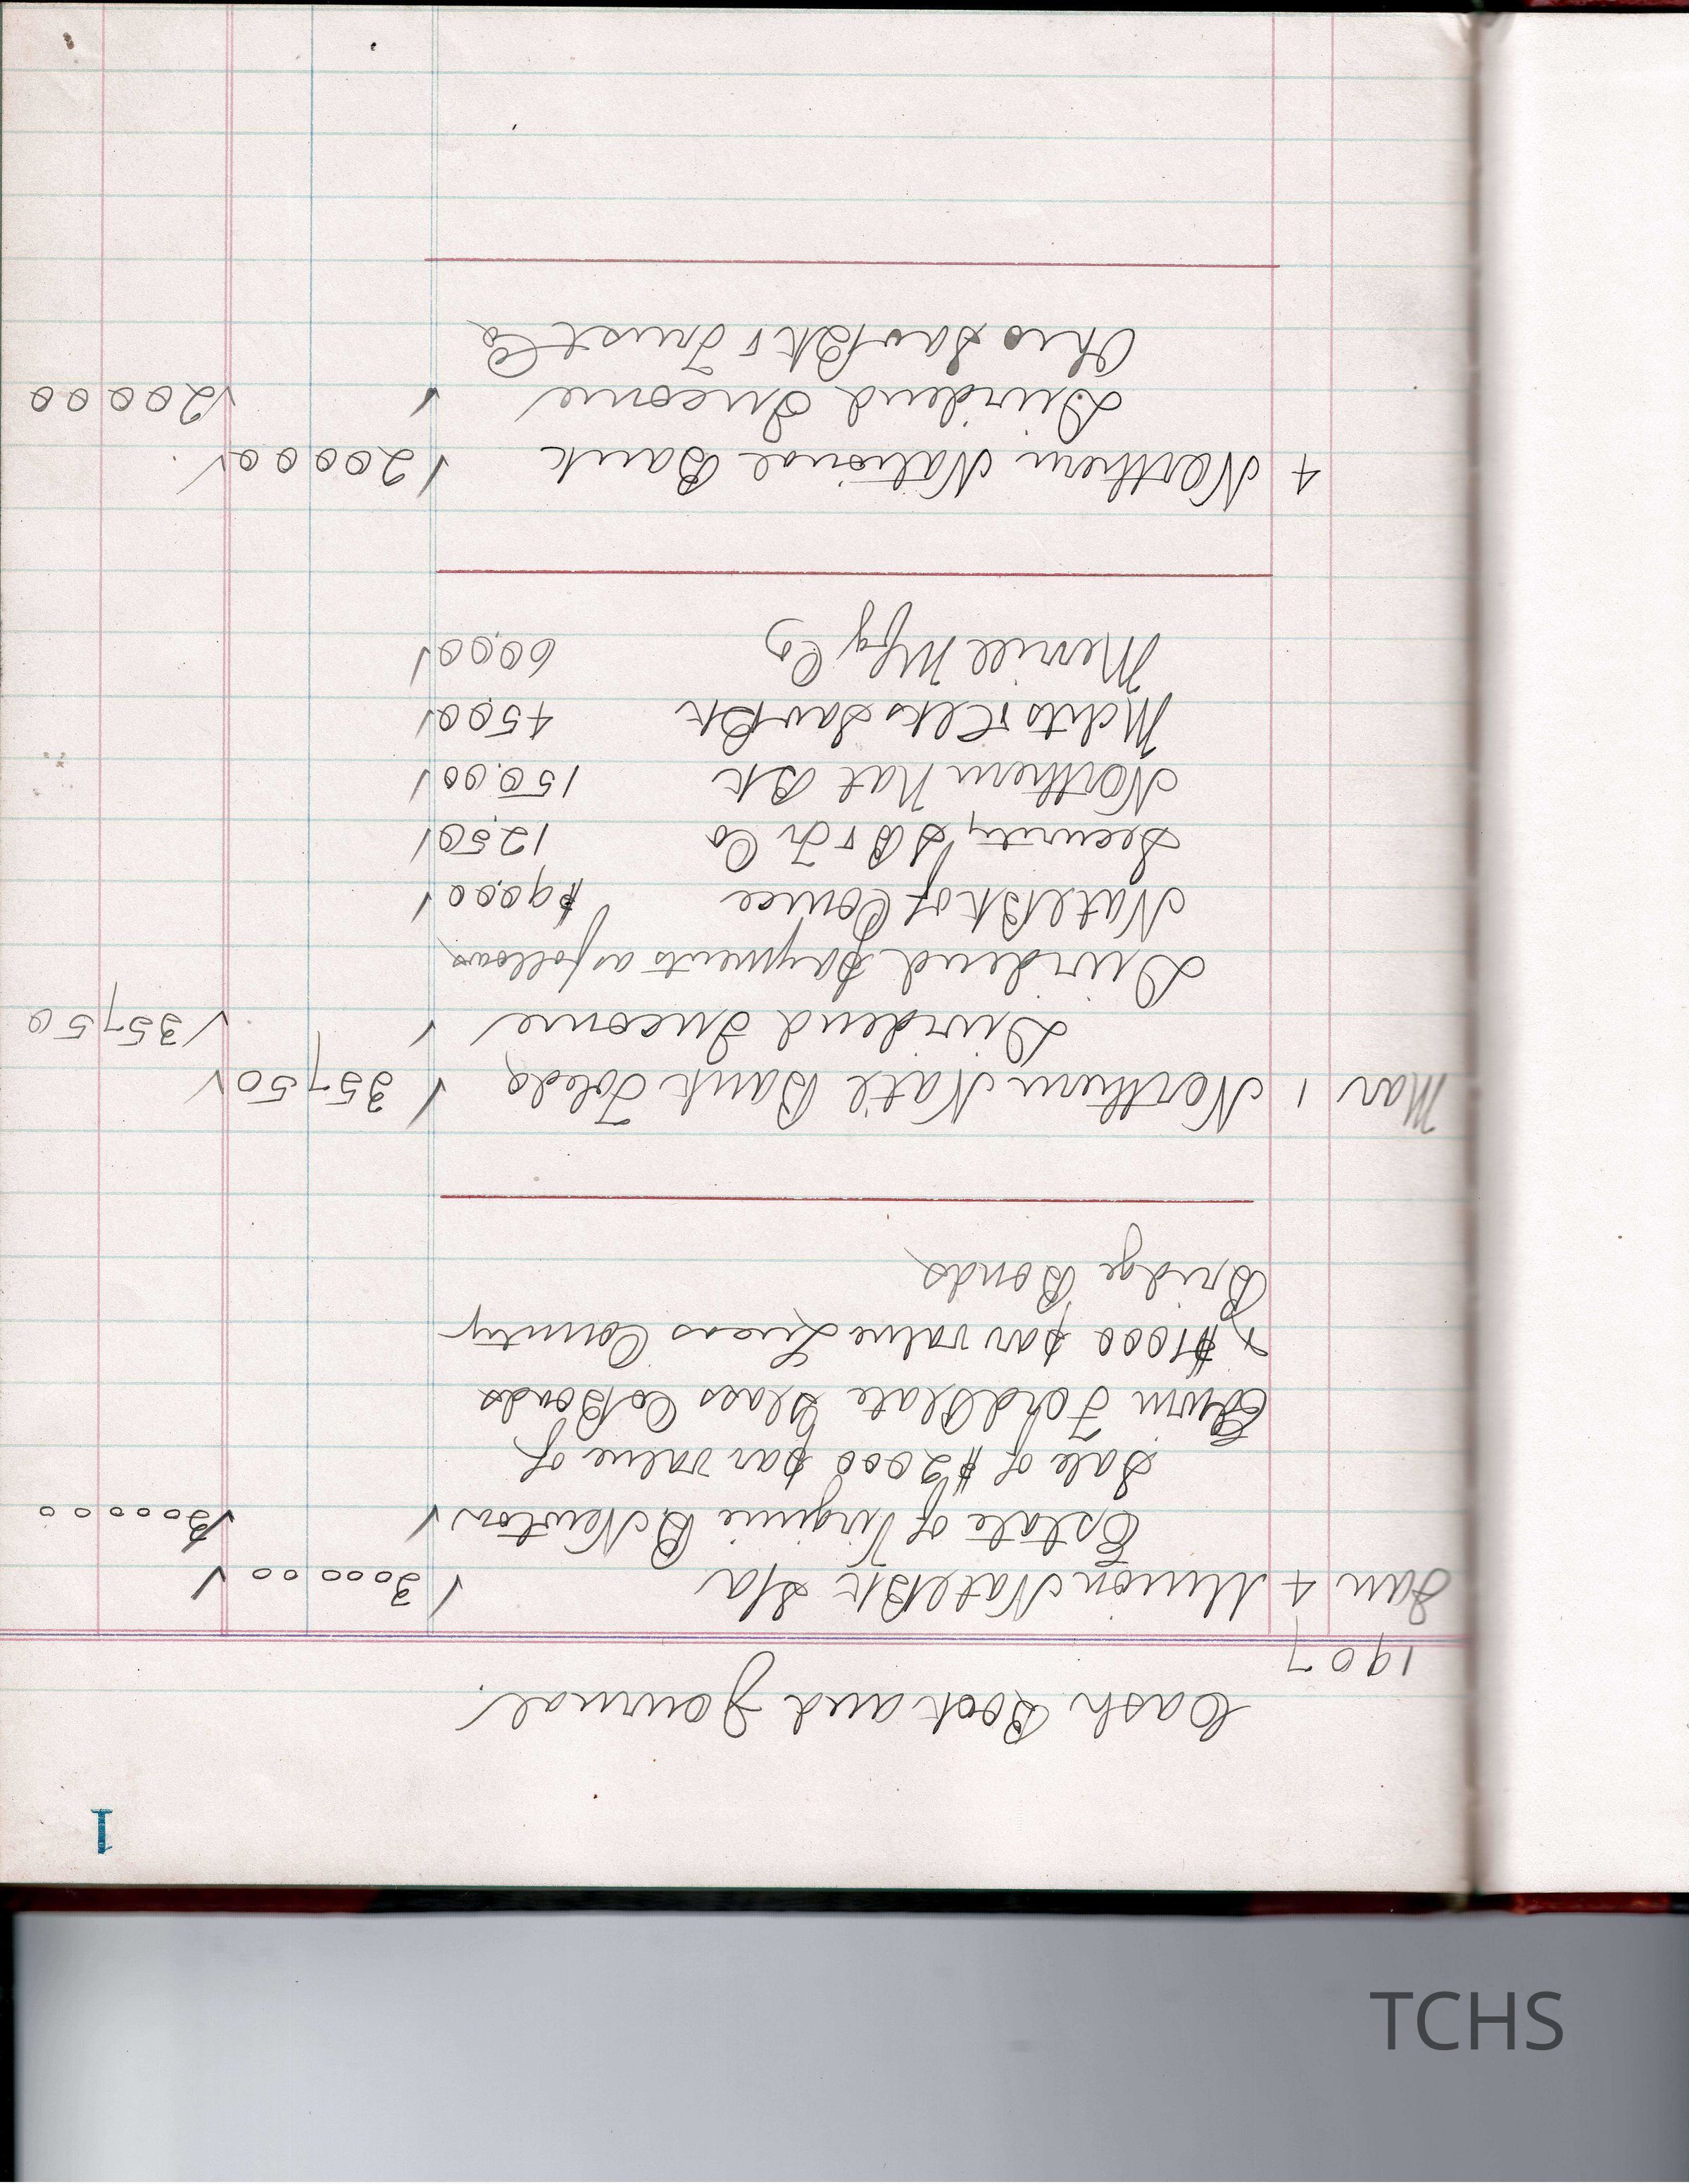 1
Cash Book and Journal.
1907
Jan 4 Union Natl Bk s/a √ 3000 00 √
Estate of Virginia B Newton √ √ 3000 00
Sale of $2000 par value of
Ford Plate Glass Co Bonds
+ $1000 par value Lucas County
Bridge Bonds
Mar 1 Northern Nat'l Bank Toledo √ 357 50 √
Dividend Income √ √ 357 50
Dividend payments as follows
Natl Bk of Comce $90.00 √
Security S B & Tr Co 12.50 √
Northern Nat Bk 150.00 √
Mchts & Clks Sav Bk 45.00 √
Merrill Mfg Co 60.00 √
4 Northern National Bank √ 200 00 √
Dividend Income √ √ 200 00
Ohio Sav Bk & Trust Co
TCHS